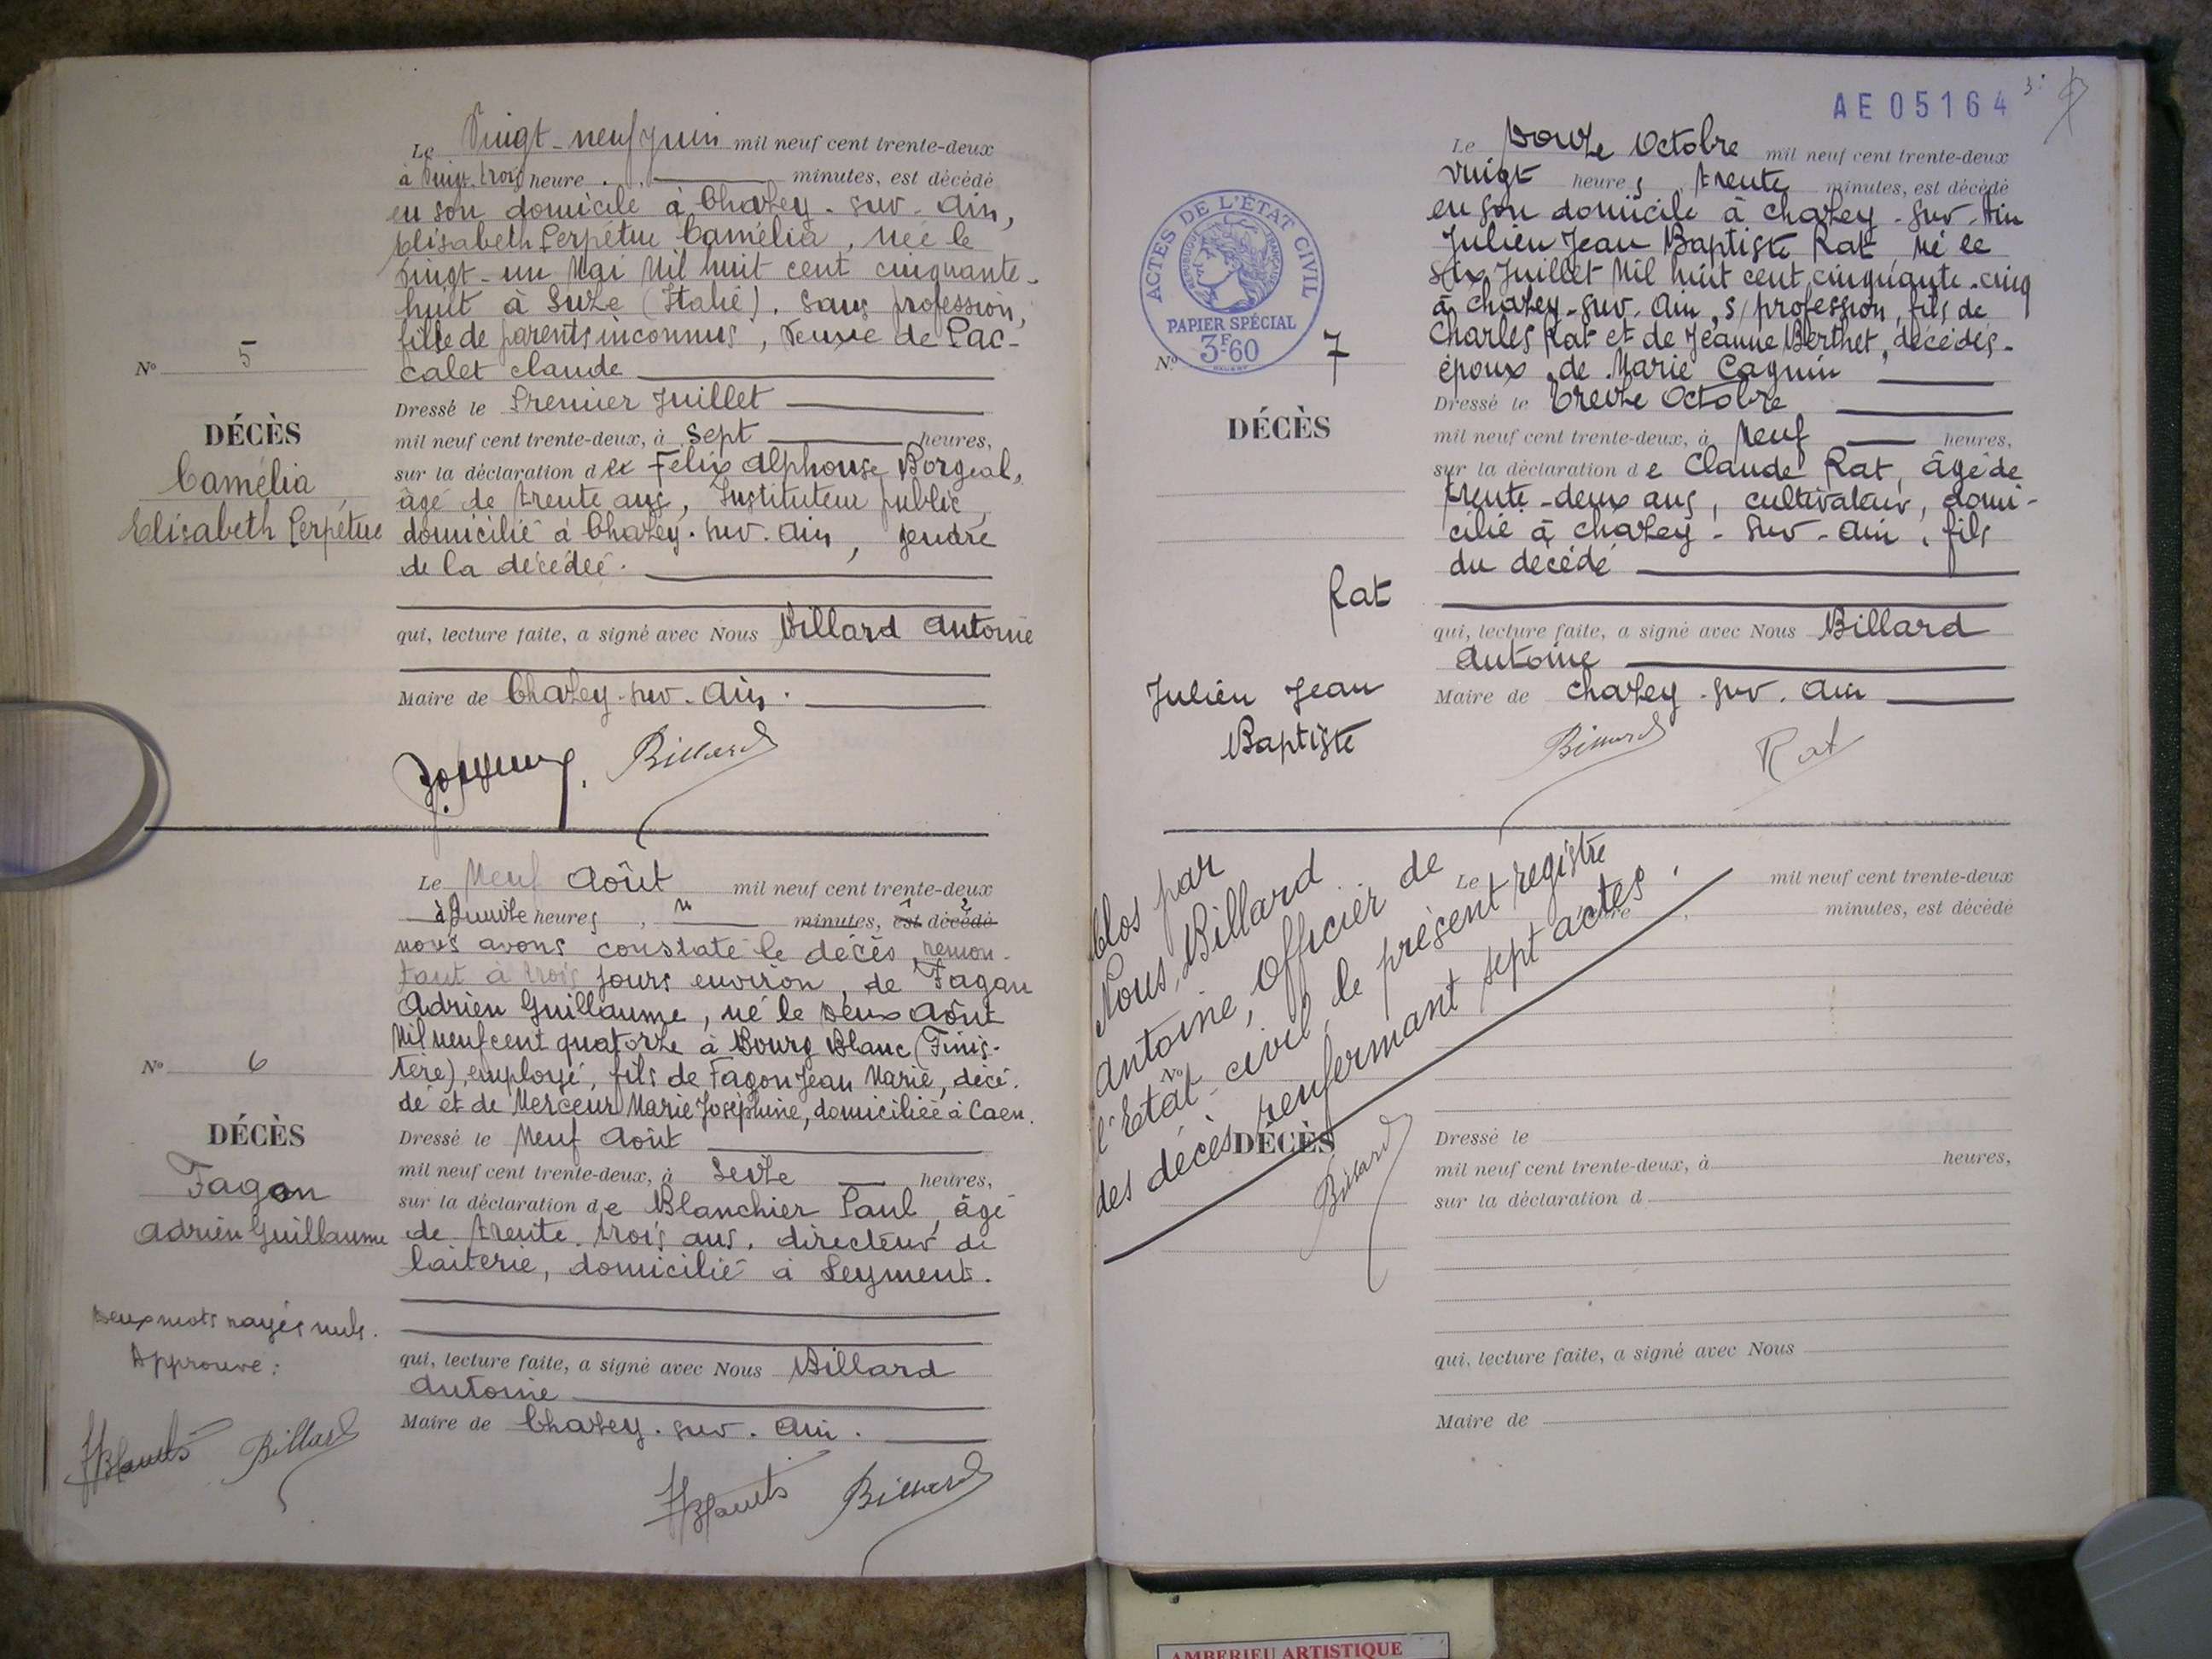 Le Vingt-neuf Juin mil neuf cent trente-deux
à Vingt-trois heure , minutes, est décédé
en son domicile à Chazey-sur-Ain,
Elisabeth Perpétue Camélia, née le
vingt-un Mai Mil huit cent cinquante-
huit à Suze (Italie). Sans profession,
fille de parents inconnus, Veuve de Pac-
calet Claude
N° 5
DÉCÈS
Camélia
Elisabeth Perpétue
Dressé le Premier Juillet
mil neuf cent trente-deux, à Sept heures,
sur la déclaration de Félix Alphonse Borgeal,
âgé de trente ans, Instituteur public,
domicilié à Chazey-sur-Ain, gendre
de la décédée.
qui, lecture faite, a signé avec Nous Billard Antoine
Maire de Chazey-sur-Ain.
Billard
Le Neuf Août mil neuf cent trente-deux
à Quinze heures, " minutes, est décédé
nous avons constaté le décès, remon-
tant à trois jours environ, de Fagon
Adrien Guillaume, né le Deux Août
Mil neuf cent quatorze à Bourg Blanc (Finis-
tère), employé, fils de Fagon Jean Marie, décé-
dé et de Merceur Marie Joséphine, domiciliée à Caen.
N° 6
DÉCÈS
Fagon
Adrien Guillaume
Deux mots rayés nuls.
Approuvé :
Billard
Dressé le Neuf Août
mil neuf cent trente-deux, à Seize heures,
sur la déclaration de Blanchier Paul, âgé
de trente-trois ans, directeur de
laiterie, domicilié à Leyment.
qui, lecture faite, a signé avec Nous Billard
Antoine
Maire de Chazey-sur-Ain.
Billard
AE 05164
ACTES DE L'ÉTAT CIVIL
RÉPUBLIQUE FRANÇAISE
PAPIER SPÉCIAL
3F60
Le Douze Octobre mil neuf cent trente-deux
vingt heures, trente minutes, est décédé
en son domicile à Chazey-sur-Ain
Julien Jean Baptiste Rat, né le
Six Juillet Mil huit cent cinquante-cinq
à Chazey-sur-Ain, s/profession, fils de
Charles Rat et de Jeanne Berthet, décédés-
époux de Marie Cagnin
N° 7
DÉCÈS
Rat
Julien Jean
Baptiste
Dressé le treize Octobre
mil neuf cent trente-deux, à Neuf heures,
sur la déclaration de Claude Rat, âgé de
trente-deux ans, cultivateur, domi-
cilié à Chazey-sur-Ain, fils
du décédé
qui, lecture faite, a signé avec Nous Billard
Antoine
Maire de Chazey-sur-Ain
Billard Rat
Clos par
Nous, Billard
Antoine, Officier de
l'Etat-civil, le présent registre
des décès renfermant sept actes.
Billard
Le mil neuf cent trente-deux
heure , minutes, est décédé
N°
DÉCÈS
Dressé le
mil neuf cent trente-deux, à heures,
sur la déclaration d
qui, lecture faite, a signé avec Nous
Maire de
AMBERIEU ARTISTIQUE